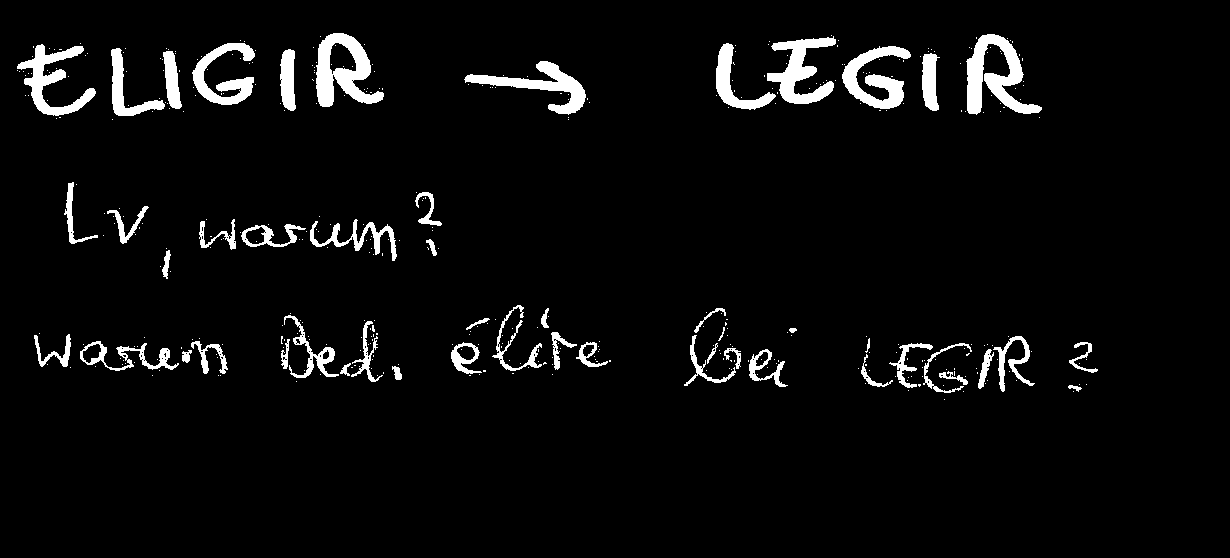 ELIGIR → LEGIR
Lv, warum?
warum Bed. élire bei LEGIR?